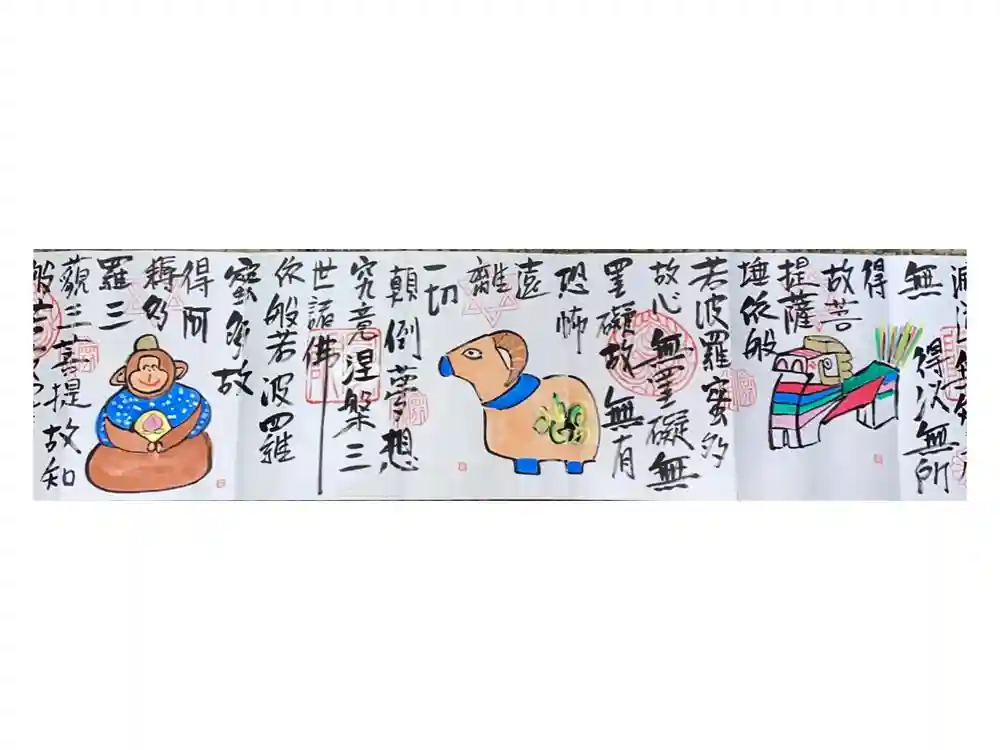 無得以無所
得
故菩
提薩
埵依般
若波羅蜜多
故心無罣礙無
罣礙故無有
恐怖
遠
離
一切
顛倒夢想
究竟涅槃三
世諸佛
依般若波羅
蜜多故
得阿
耨多
羅三
藐三菩提故知
般